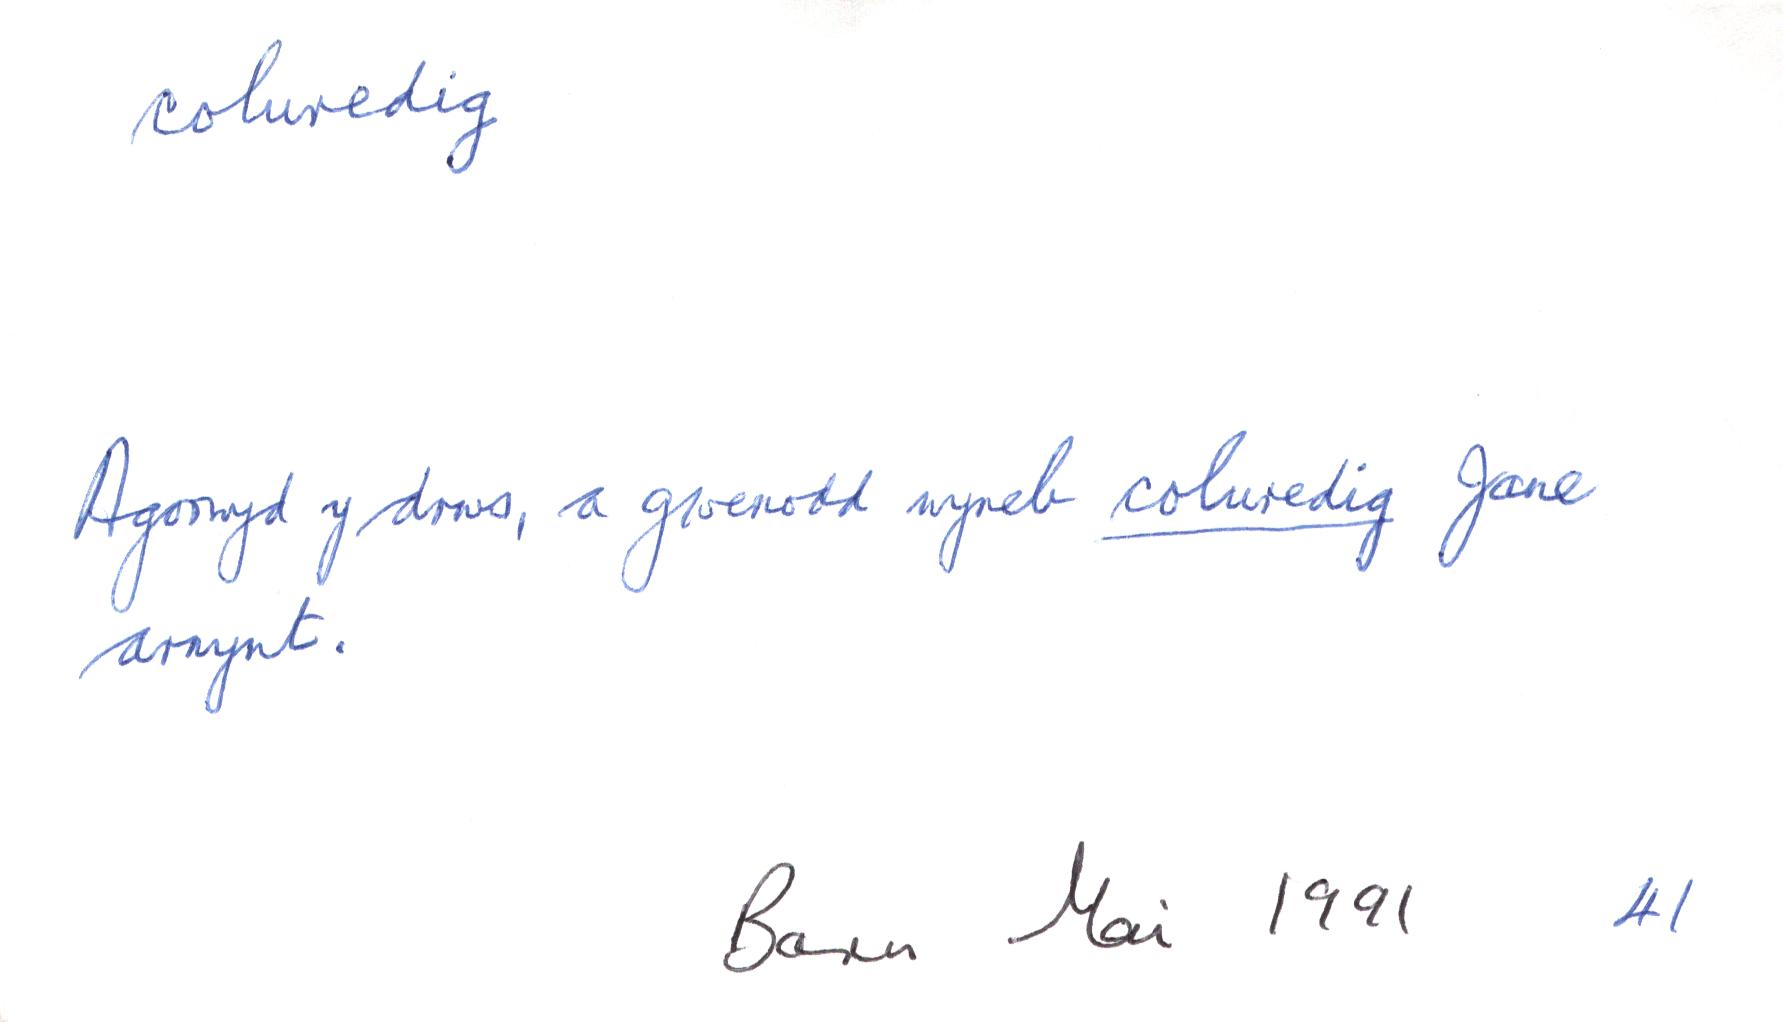 coluredig
Agorwyd y drws, a gwenodd wyneb coluredig Jane
arnynt.
Barn Mai 1991 41